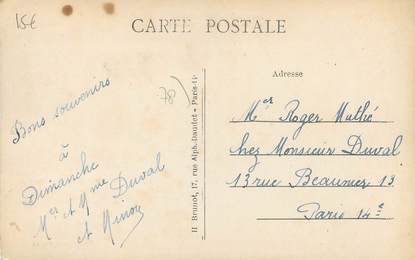 15€
CARTE POSTALE
Bons souvenirs
à
Dimanche
Mer et Mme Duval
et Minou
78)
H Brunot, 17, rue Alph. Daudet - Paris-14
Adresse
Mer Roger Mathé
chez Monsieur Duval
13 rue Beaunier 13
Paris 14e